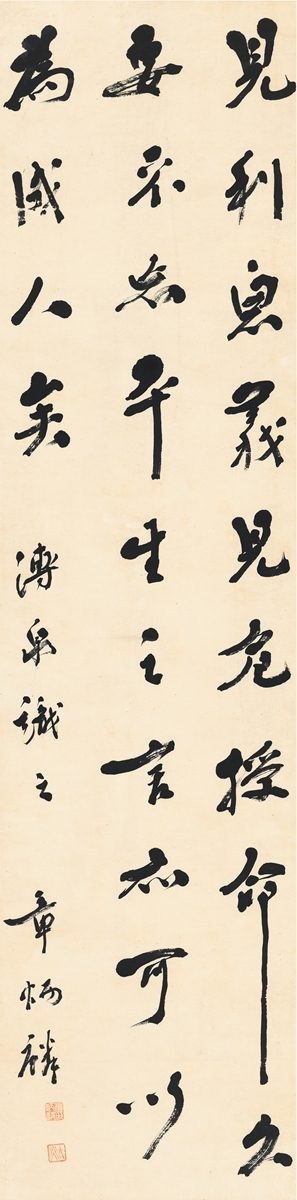 見利思義見危授命久
要不忘平生之言亦可以
為成人矣
溥泉識之
章炳麟